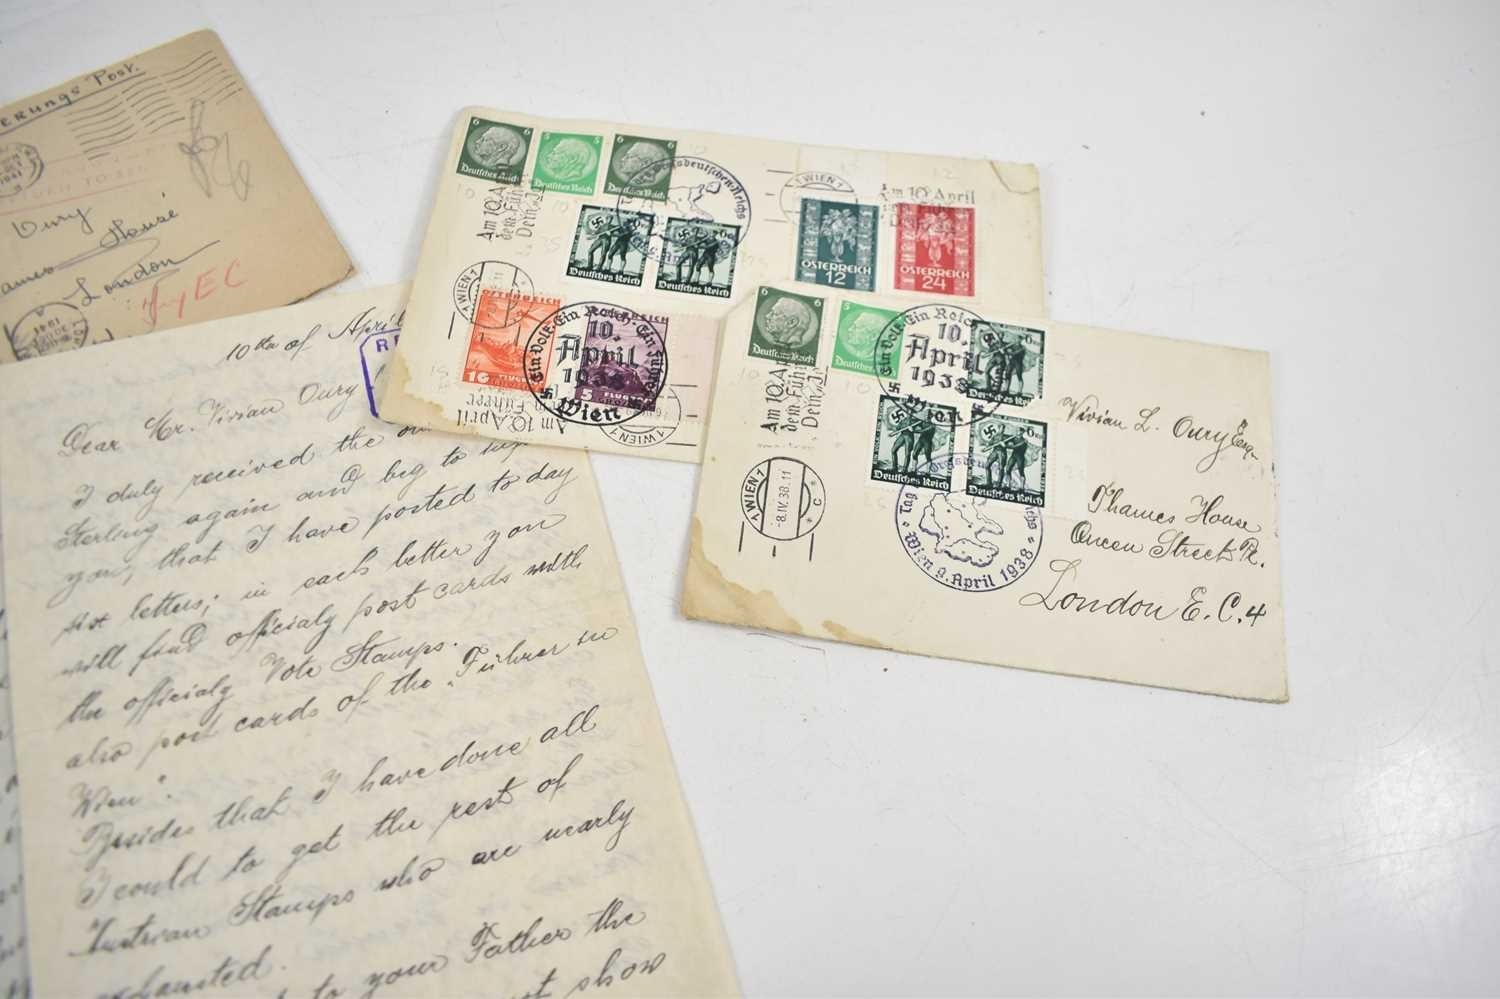 ERUNGS Post.
1941
Oury
ames House
London
EC
1941
10th of April
Dear Mr. Vivian Oury
I duly received the
Sterling again and beg to
you, that I have posted to day
six letters; in each letter you
will find officialy post cards with
the officialy Vote Stamps.
also post cards of the „Führer in
Wien“.
Besides that I have done all
I could to get the rest of
Austrian Stamps who are nearly
exhausted.
to your Father the
show
6 6
5 5
6 6
Deutsches Reich
Deutsches Reich
Deutsches Reich
Am 10. A
dem Führ
Dein
Deutsches Reich
Deutsches Reich
1 WIEN 1
Am 10. April
ÖSTERREICH
12
ÖSTERREICH
24
1 WIEN 1
ÖSTERREICH
10
FLUG
5
FLUG
Ein Volk · Ein Reich · Ein Führer
10.
April
1938
Wien
Am 10. April
1 WIEN 1
6 6
5 5
Deutsches Reich
Deutsches Reich
Am 10. A
dem Führ
Dein Ja
Ein Volk · Ein Reich
10.
April
1938
Deutsches Reich
Deutsches Reich
1 WIEN 1
-8.IV.38.11
* C *
Tag
Wien 9. April 1938
Vivian L. Oury Esq.
Thames House
Queen Street Pl.
London E.C.4